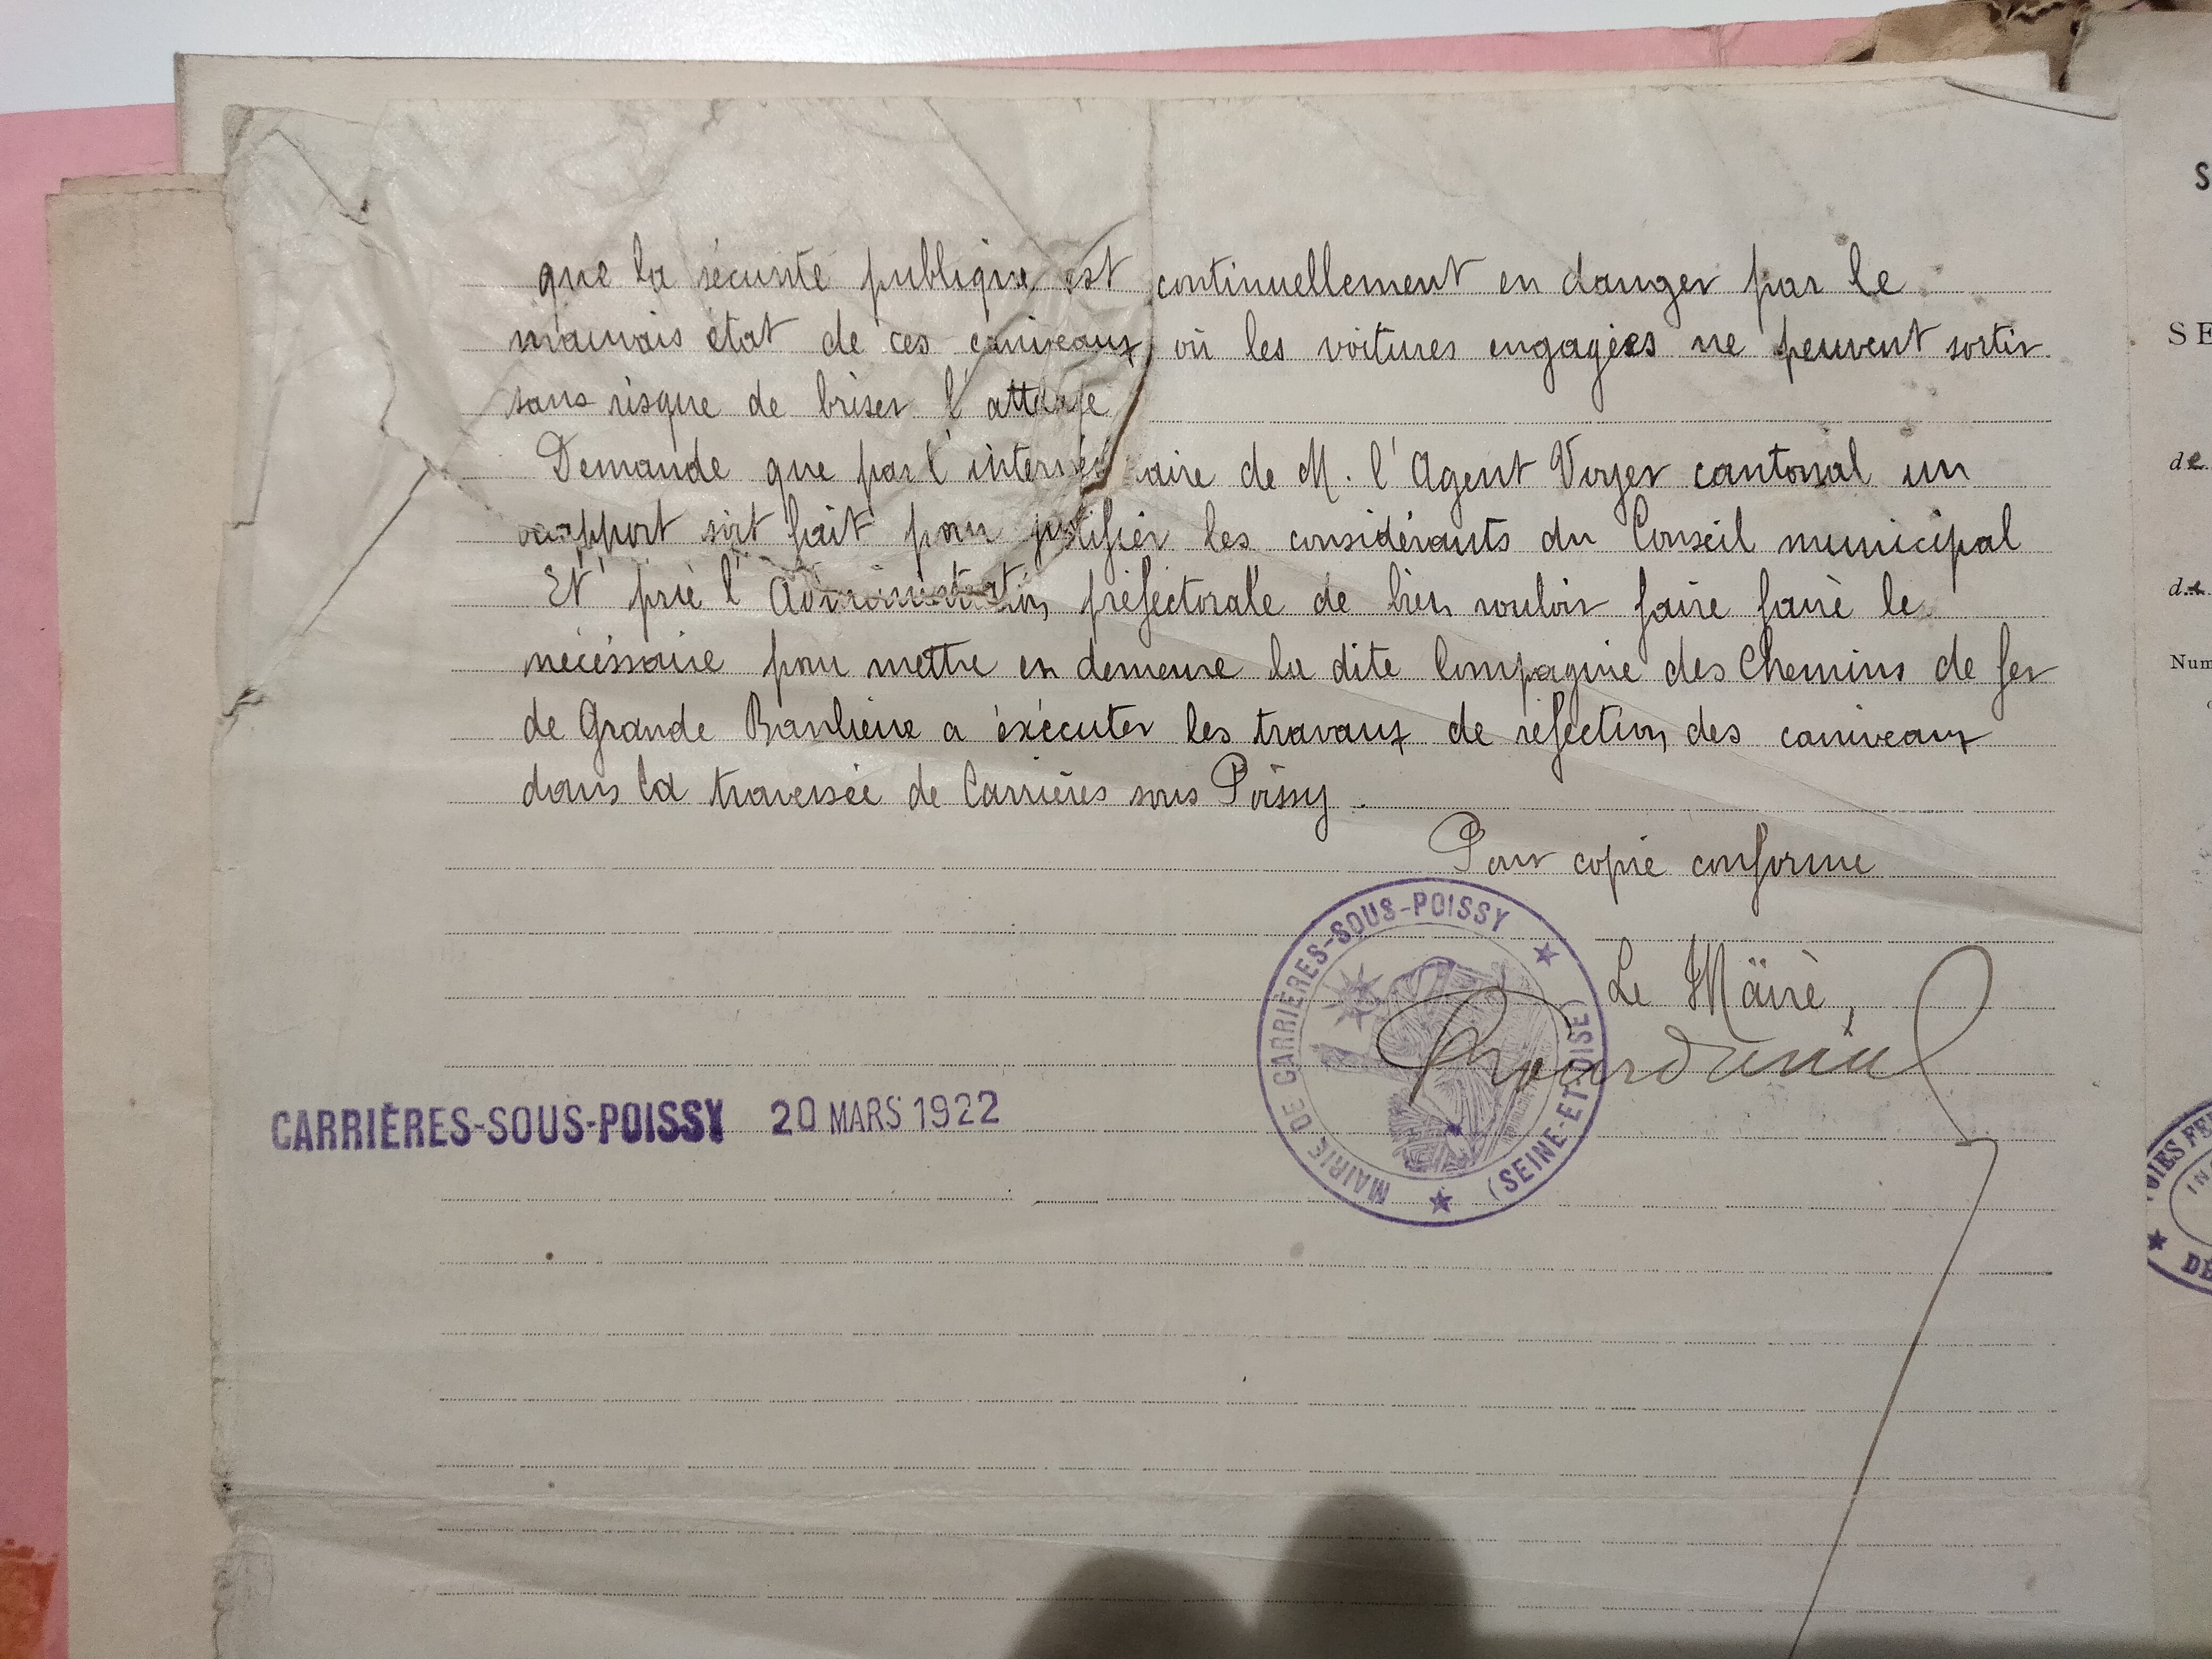 que la sécurité publique est continuellement en danger par le
mauvais état de ces caniveaux, où les voitures engagées ne peuvent sortir
sans risque de briser l'attelage
Demande que par l'intermédiaire de M. l'Agent Voyer cantonal un
rapport soit fait pour justifier les considérants du Conseil municipal
Et prie l'Administration préfectorale de bien vouloir faire faire le
nécéssaire pour mettre en demeure la dite Compagnie des Chemins de fer
de Grande Banlieue a éxécuter les travaux de réfection des caniveaux
dans la traversée de Carrières sous Poissy.
Pour copie conforme
Le Maire,
MAIRIE DE CARRIÈRES-SOUS-POISSY ★
(SEINE-ET-OISE) ★
CARRIÈRES-SOUS-POISSY 20 MARS 1922
S
SE
de
de
Num
VOIES FE
IN
★ DÉ